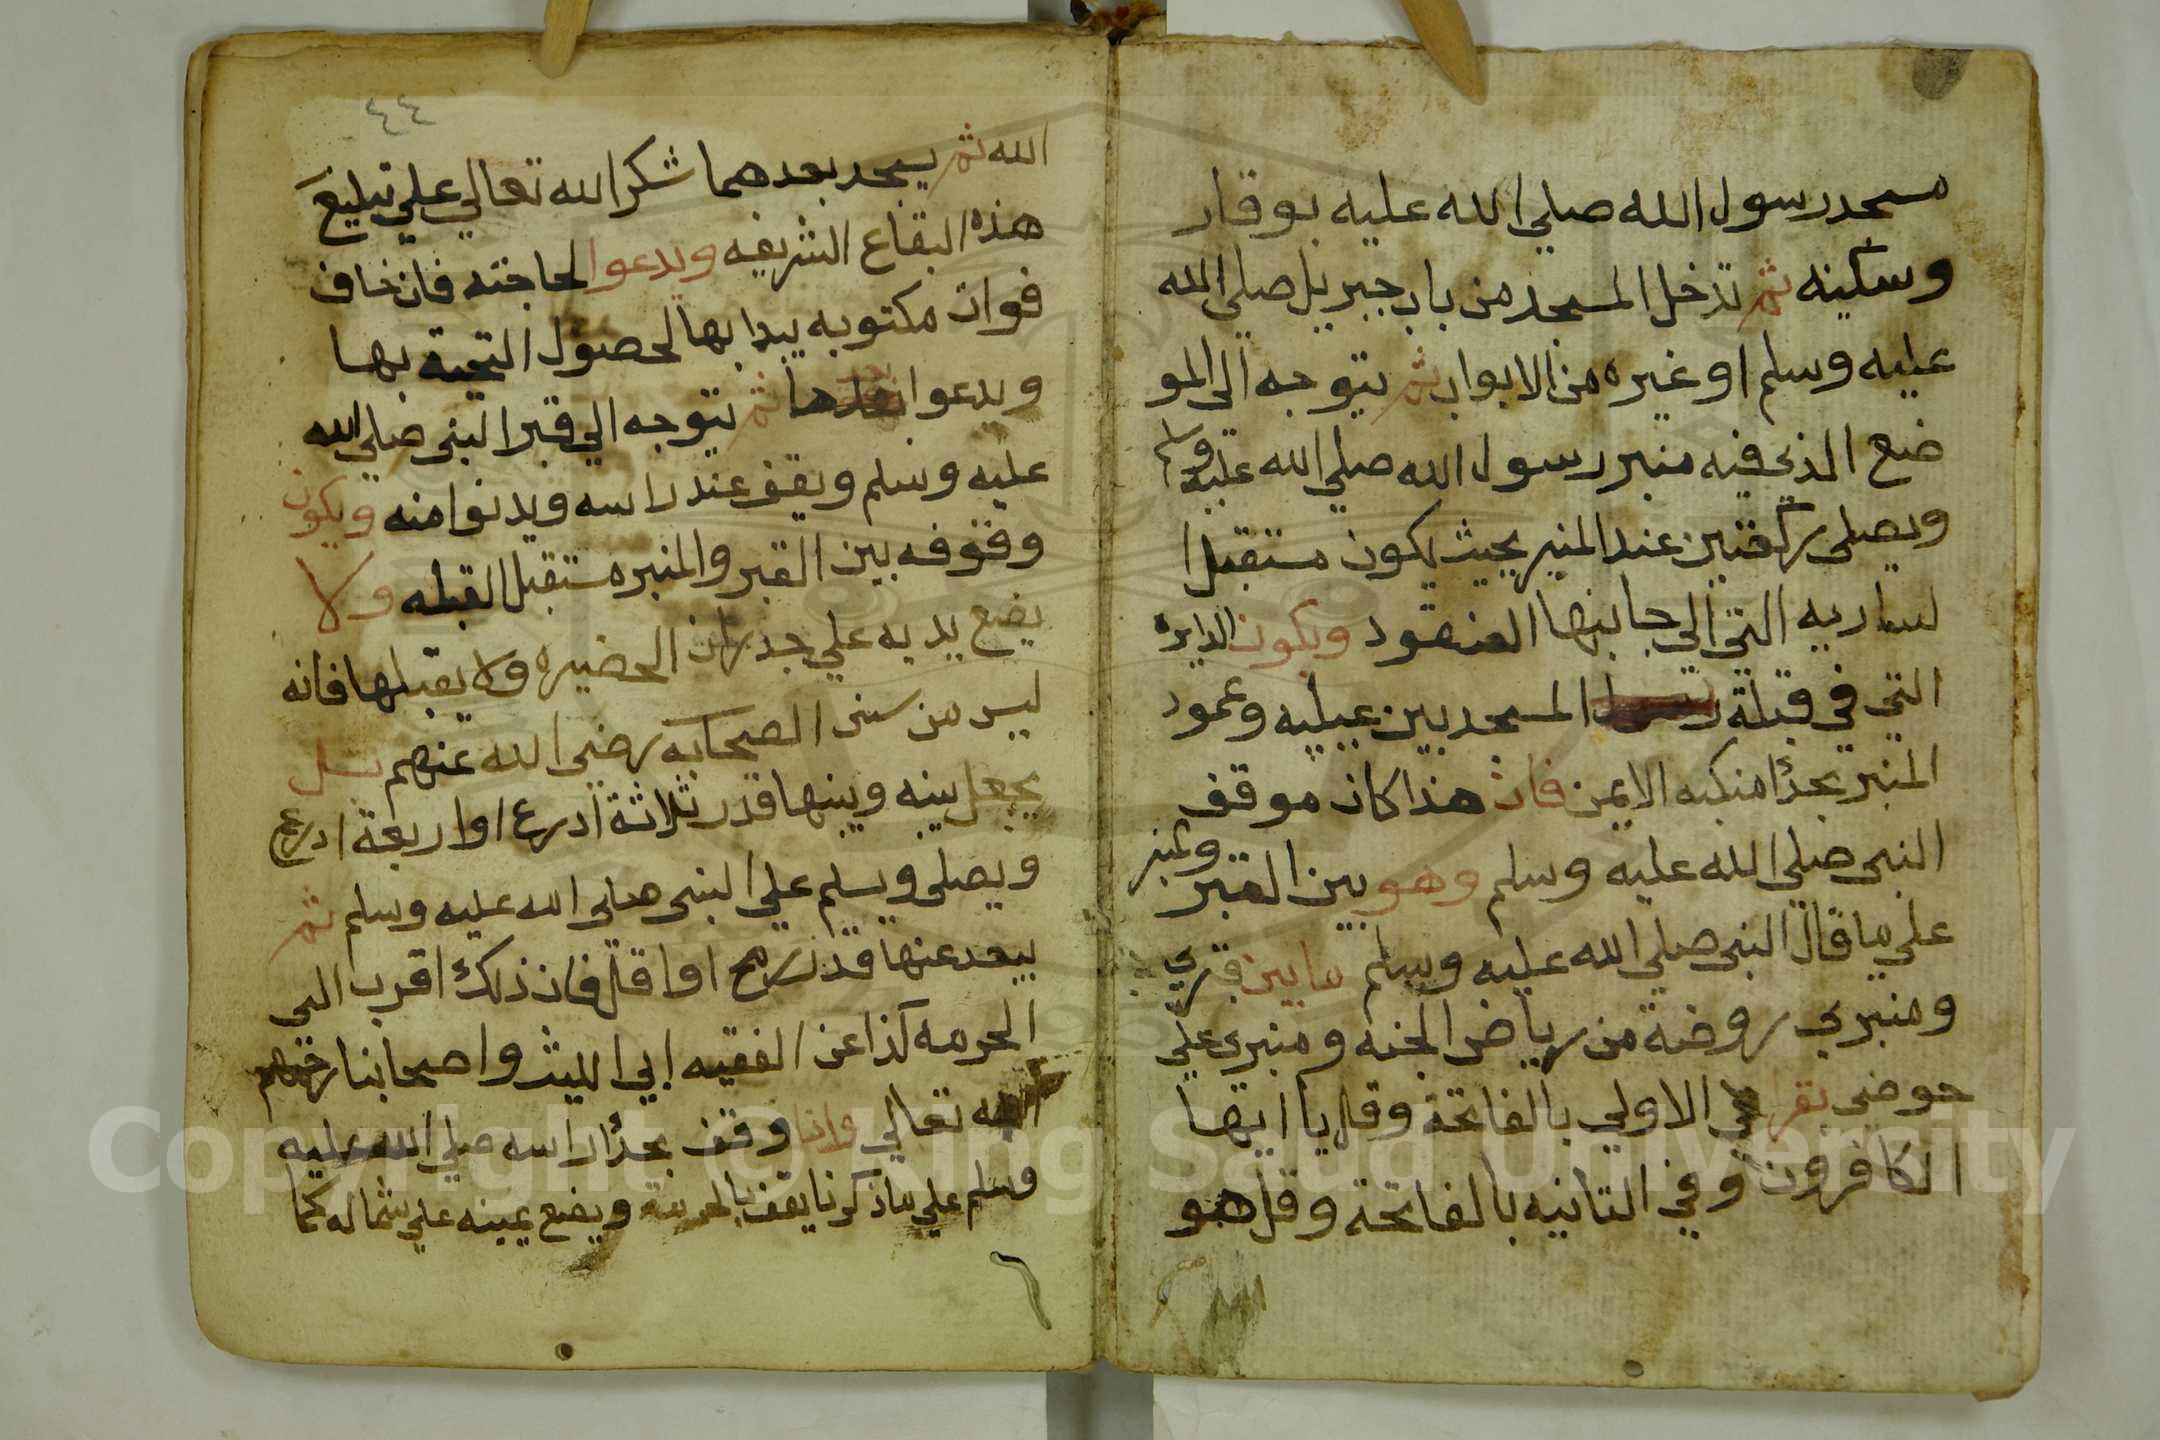 مسجد رسول الله صلي الله عليه بوقار
وسكينه ثم تدخل المسجد من باب جبريل صلي الله
عليه وسلم او غيره من الابواب ثم يتوجه الى المو
ضع الذى فيه منبر رسول الله صلي الله عليه وسلم
ويصلى ركعتين عند المنبر بحيث يكون مستقبل ا
لساريه التي الى جانبها العنقود ويكون الدايره
التي في قبلة المسجد بين عينيه وعمود
المنبر بحذا منكبه الايمن فان هذا كان موقف
النبي صلي الله عليه وسلم وهو بين القبر والمنبر
علي ما قال النبي صلي الله عليه وسلم ما بين قبري
ومنبري روضة من رياض الجنه ومنبري علي
حوضي يقرا في الاولي بالفاتحة وقل يا ايها
الكافرون وفي الثانيه بالفاتحة وقل هو
٤٤
الله ثم يسجد بعدهما شكرا لله تعالي علي تبليغ
هذه البقاع الشريفه ويدعوا لحاجته فان خاف
فوات مكتوبه يبدا بها لحصول التحية بها
ويدعوا بعدها ثم يتوجه الي قبر النبي صلي الله
عليه وسلم ويقف عند راسه ويدنوا منه ويكون
وقوفه بين القبر والمنبر مستقبل القبله ولا
يضع يديه علي جدران الحضيره ولا يقبلها فانه
ليس من سنن الصحابه رضي الله عنهم بل
يجعل بينه وبينها قدر ثلاثة اذرع او اربعة اذرع
ويصلى ويسلم علي النبي صلي الله عليه وسلم ثم
يبعد عنها قدر رمح او اقل فان ذلك اقرب الي
الحرمه كذا عن الفقيه ابي الليث واصحابنا رحمهم
الله تعالي وانا وقف بحذا راسه صلي الله عليه
وسلم علي ما ذكرنا يقف ويضع يمينه علي شماله كما
Copyright © King Saud University